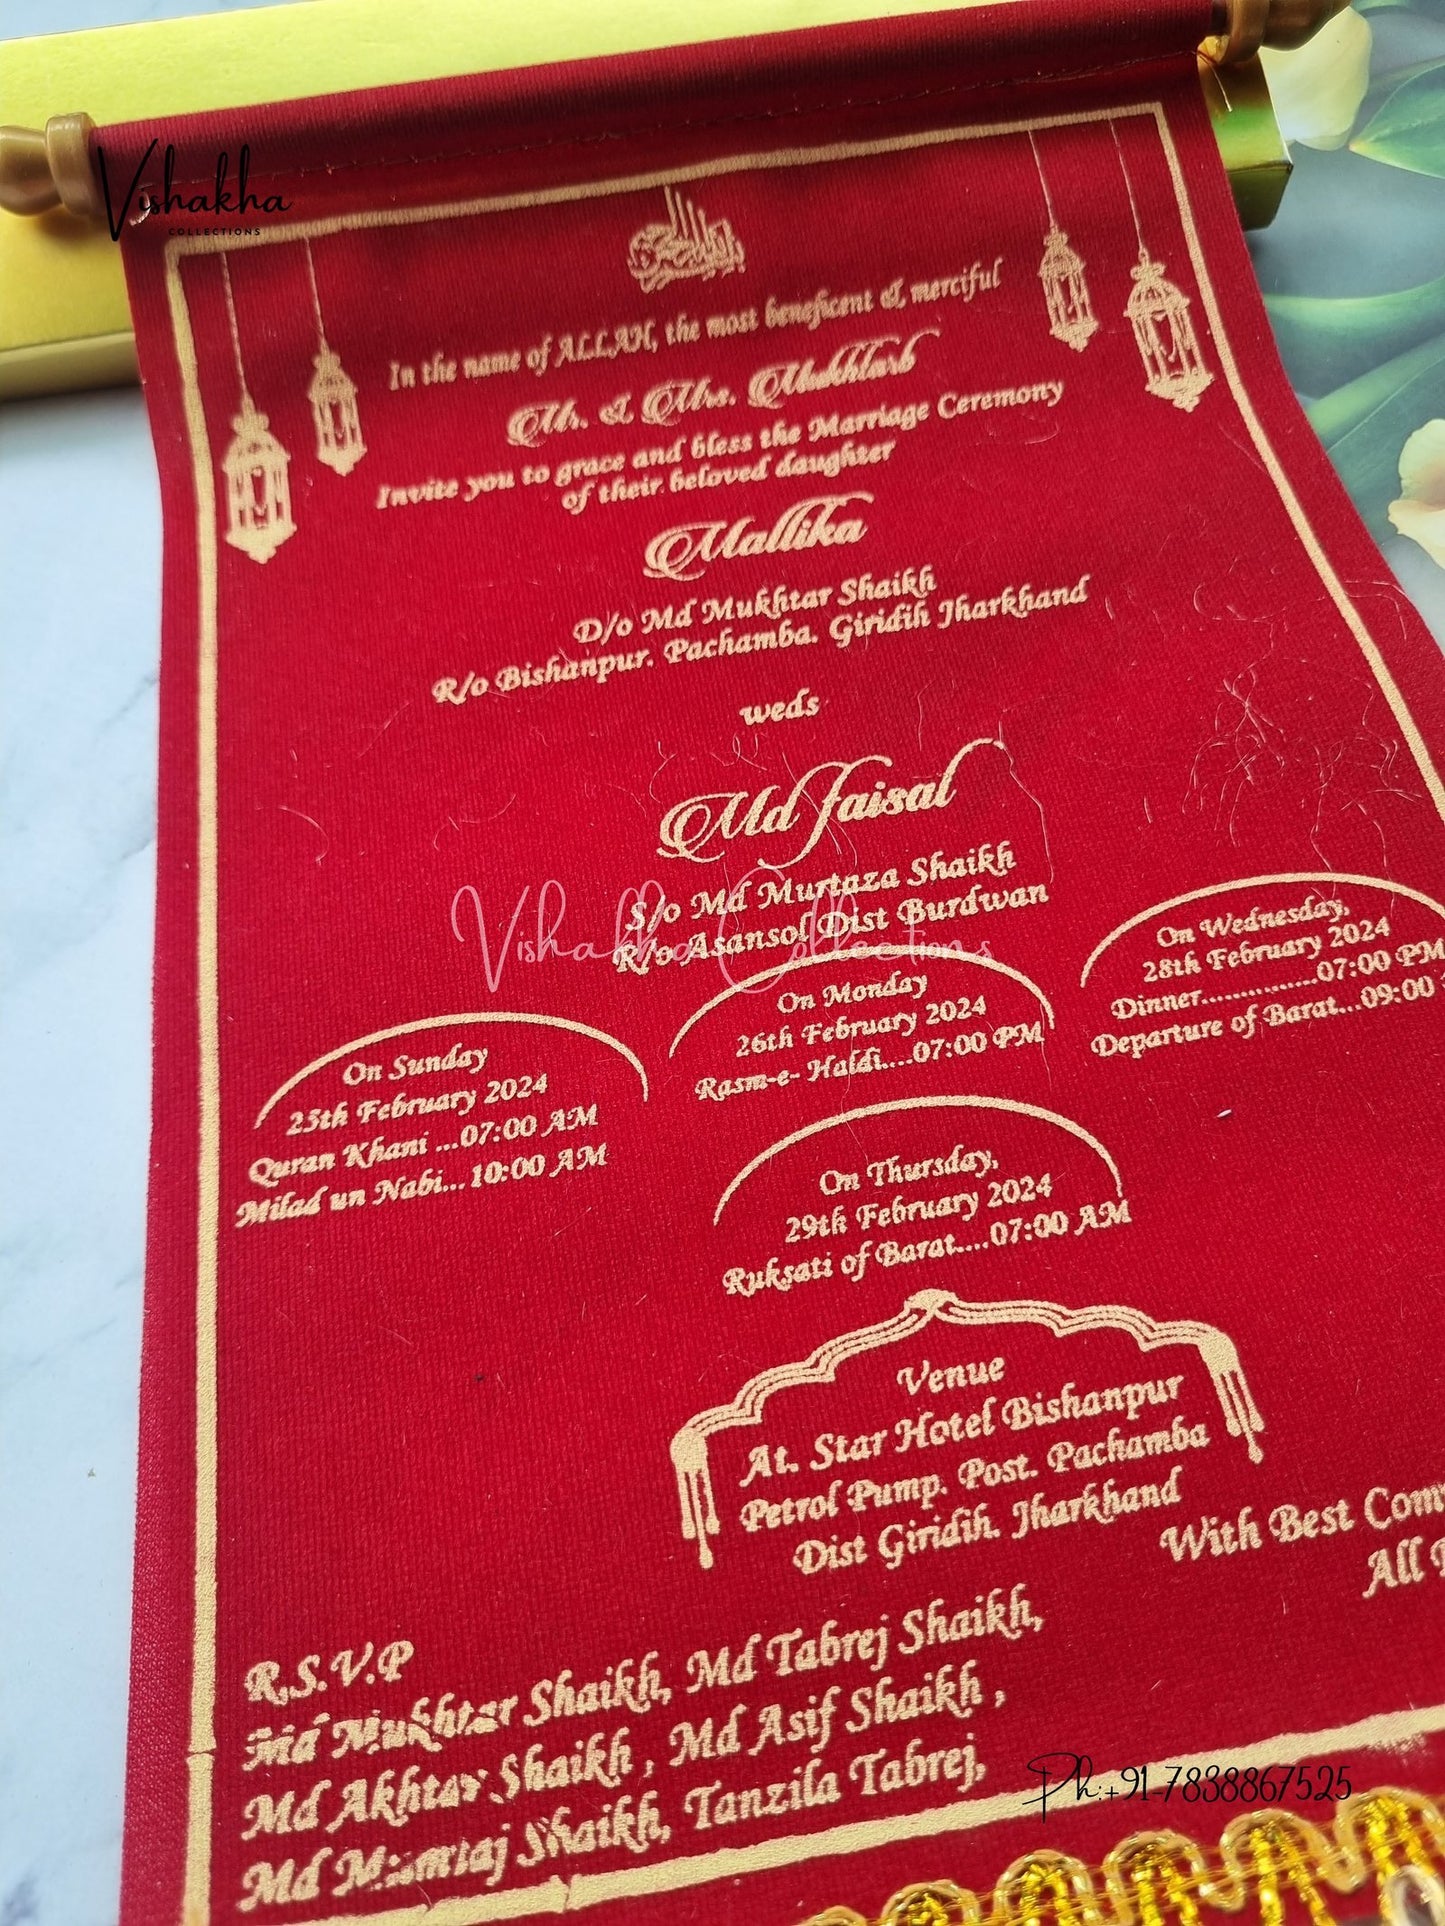 Vishakha
COLLECTIONS
In the name of ALLAH, the most beneficent & merciful
Mr. & Mrs. Mukhtar
Invite you to grace and bless the Marriage Ceremony
of their beloved daughter
Mallika
D/o Md Mukhtar Shaikh
R/o Bishanpur. Pachamba. Giridih Jharkhand
weds
Md Faisal
S/o Md Murtaza Shaikh
R/o Asansol Dist Burdwan
Vishakha Collections
On Sunday
25th February 2024
Quran Khani ...07:00 AM
Milad un Nabi...10:00 AM
On Monday
26th February 2024
Rasm-e- Haldi....07:00 PM
On Wednesday,
28th February 2024
Dinner................07:00 PM
Departure of Barat...09:00
On Thursday,
29th February 2024
Ruksati of Barat....07:00 AM
Venue
At. Star Hotel Bishanpur
Petrol Pump. Post. Pachamba
Dist Giridih. Jharkhand
With Best
All
R.S.V.P
Md Mukhtar Shaikh, Md Tabrej Shaikh,
Md Akhtar Shaikh , Md Asif Shaikh ,
Md Mumtaj Shaikh, Tanzila Tabrej,
Ph:+91-7838867525